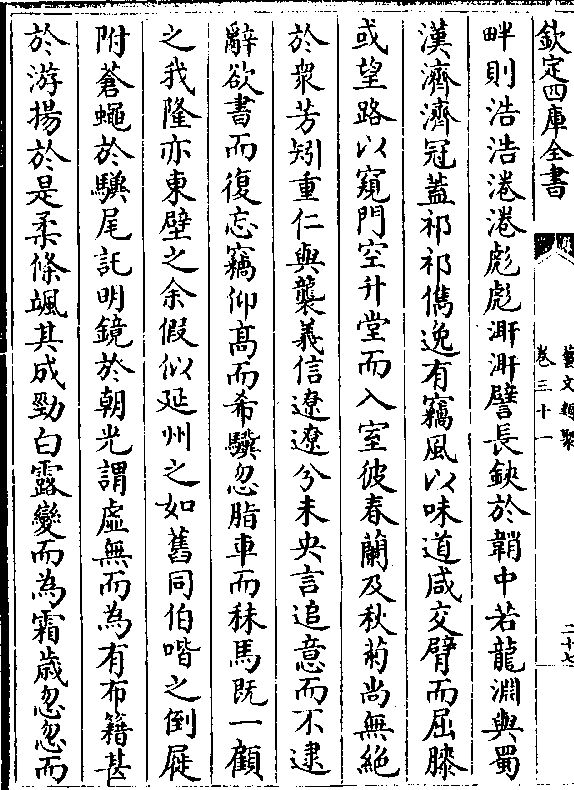 欽定四庫全書
藝文類聚
卷三十一
二十七
畔則浩浩港港彪彪㳌㳌譬長鋏於鞘中若龍淵與蜀
漢濟濟冠蓋祁祁儁逸有竊風以味道咸交臂而屈膝
或望路以窺門空升堂而入室彼春蘭及秋菊尚無絶
於衆芳矧重仁與襲義信遼遼兮未央言追意而不逮
辭欲書而復忘竊仰高而希驥忽脂車而秣馬既一顧
之我隆亦東壁之余假似延州之如舊同伯喈之倒屣
附蒼蠅於驥尾託明鏡於朝光謂虛無而為有布籍甚
於游揚於是柔條颯其成勁白露變而為霜歲忽忽而